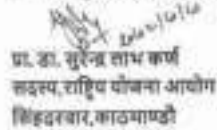 प्रा. डा. सुरेन्द्र लाभ कर्ण
सदस्य, राष्ट्रिय योजना आयोग
सिंहदरवार, काठमाण्डौ